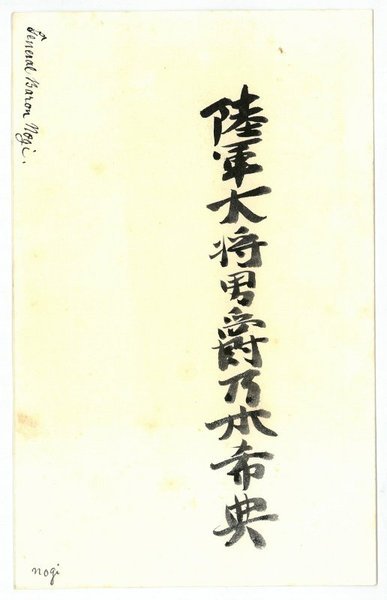 General Baron Nogi.
陸軍大将男爵乃木希典
nogi